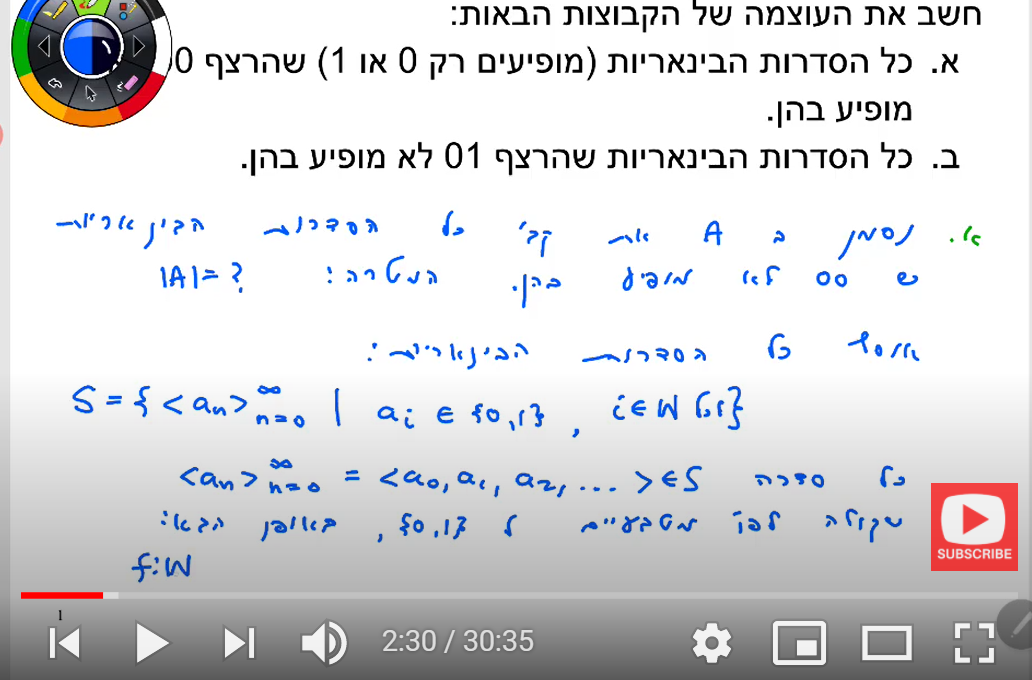 חשב את העוצמה של הקבוצות הבאות:
א. כל הסדרות הבינאריות (מופיעים רק 0 או 1) שהרצף 0
מופיע בהן.
ב. כל הסדרות הבינאריות שהרצף 01 לא מופיע בהן.
א. נסמן ב A את קב' כל הסדרות הבינאריות
ש 00 לא מופיע בהן. המטרה: |A|=?
אוסף כל הסדרות הבינאריות:
S = { <aₙ>ₙ₌₀^∞ | aᵢ ∈ {0,1}, לכל i∈ℕ}
כל סדרה <aₙ>ₙ₌₀^∞ = <a₀, a₁, a₂, ...> ∈ S
שקולה לפו' מטבעיים ל {0,1}, באופן הבא:
f:ℕ
SUBSCRIBE
1
2:30 / 30:35